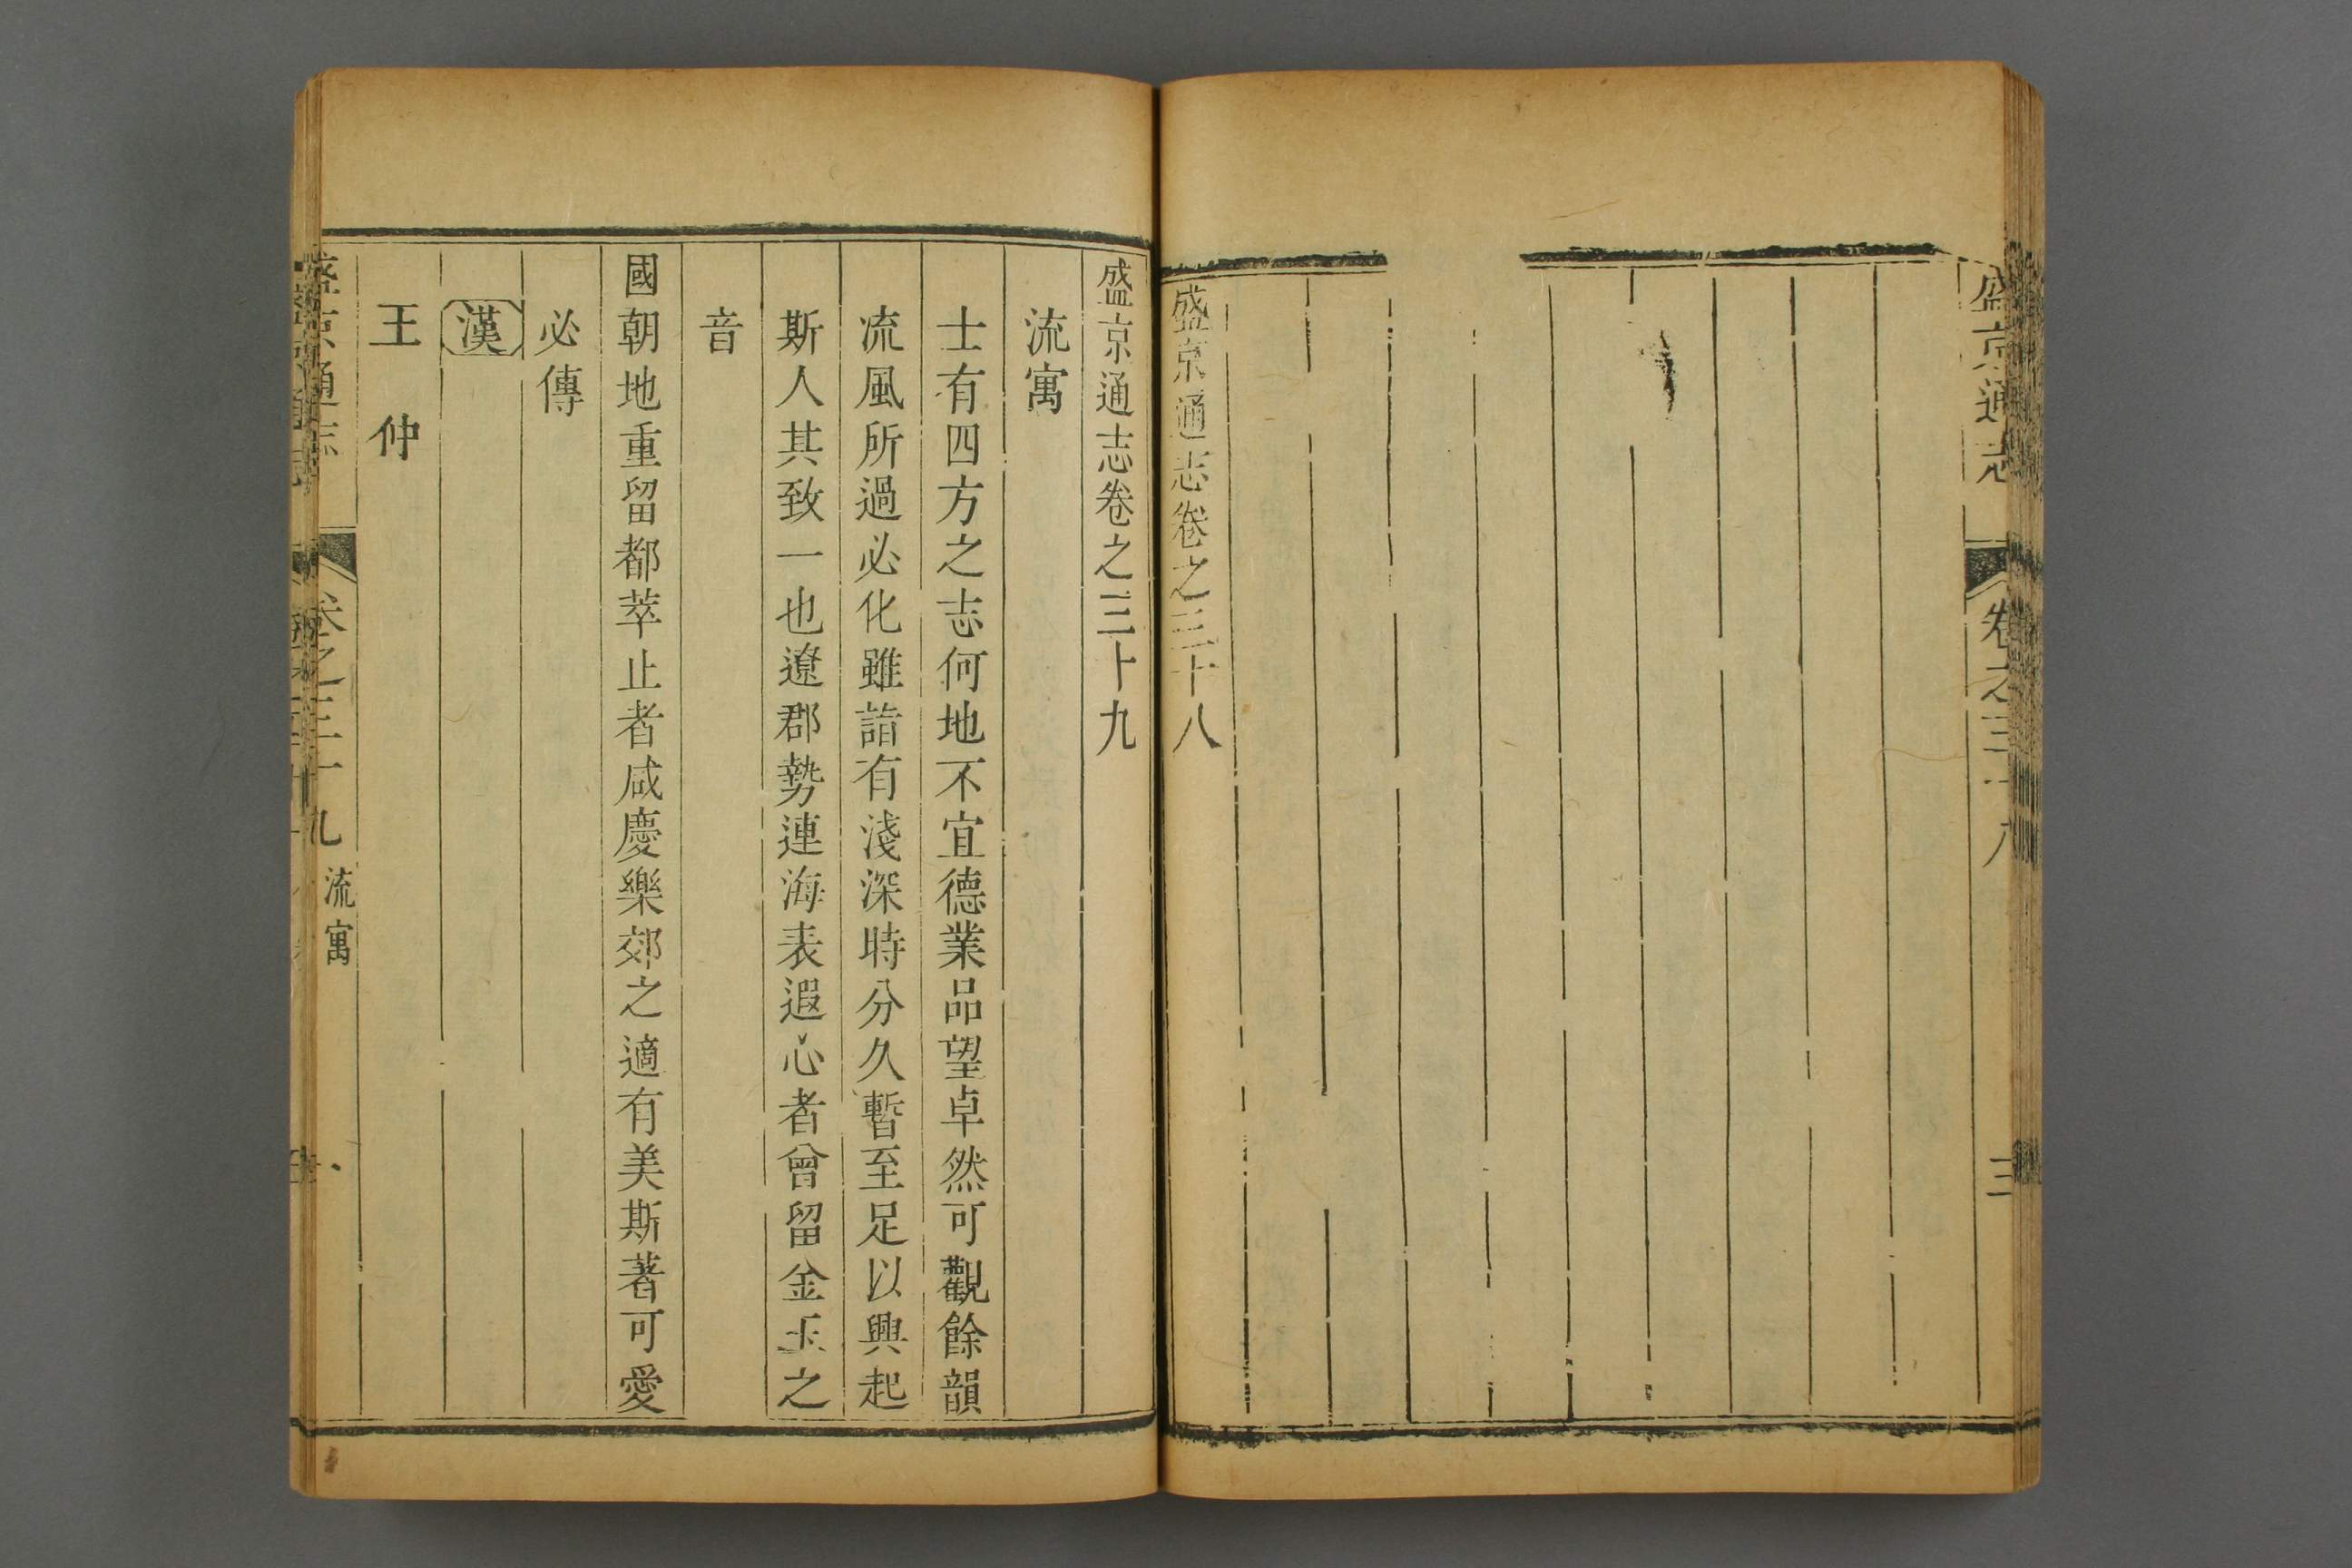 盛京通志 卷之三十八 三
盛京通志卷之三十八
盛京通志卷之三十九
流寓
士有四方之志何地不宜德業品望卓然可觀餘韻
流風所過必化雖詣有淺深時分久暫至足以興起
斯人其致一也遼郡勢連海表遐心者曾留金玉之
音
國朝地重留都萃止者咸慶樂郊之適有美斯著可愛
必傳
漢
王仲
盛京通志 卷之三十九 流寓